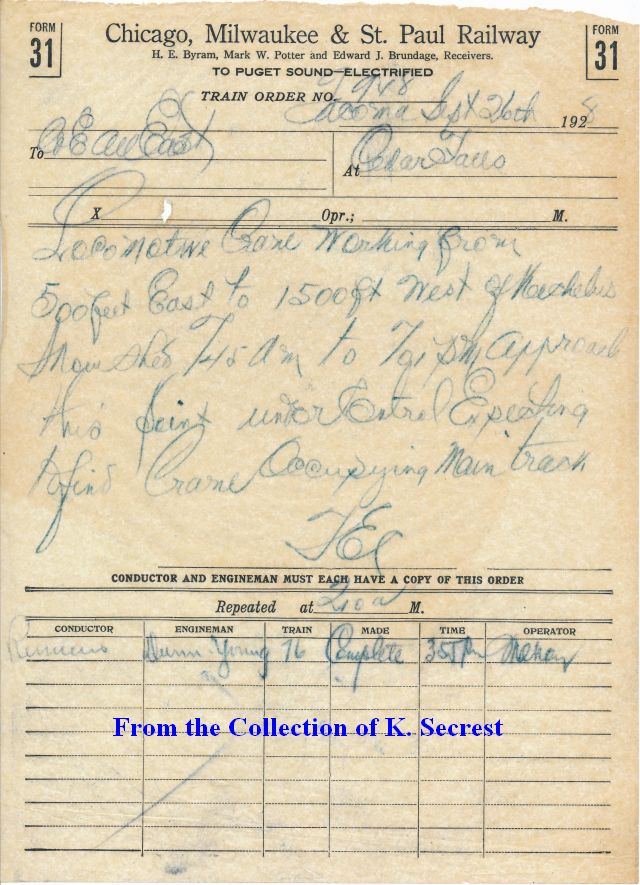 FORM
31
Chicago, Milwaukee & St. Paul Railway
FORM
31
H. E. Byram, Mark W. Potter and Edward J. Brundage, Receivers.
TO PUGET SOUND—ELECTRIFIED
TRAIN ORDER NO.
Tacoma Sept 26th 1928
To C&E All East
At Cedar Falls
X Opr.; M.
Locomotive Crane Working from
500 feet East to 1500 ft West of
Snow Shed 745 Am to PM Approach
this point under Control Expecting
to find Crane Occupying Main track
CONDUCTOR AND ENGINEMAN MUST EACH HAVE A COPY OF THIS ORDER
Repeated at M.
CONDUCTOR ENGINEMAN TRAIN MADE TIME OPERATOR
Young 76 Complete
From the Collection of K. Secrest